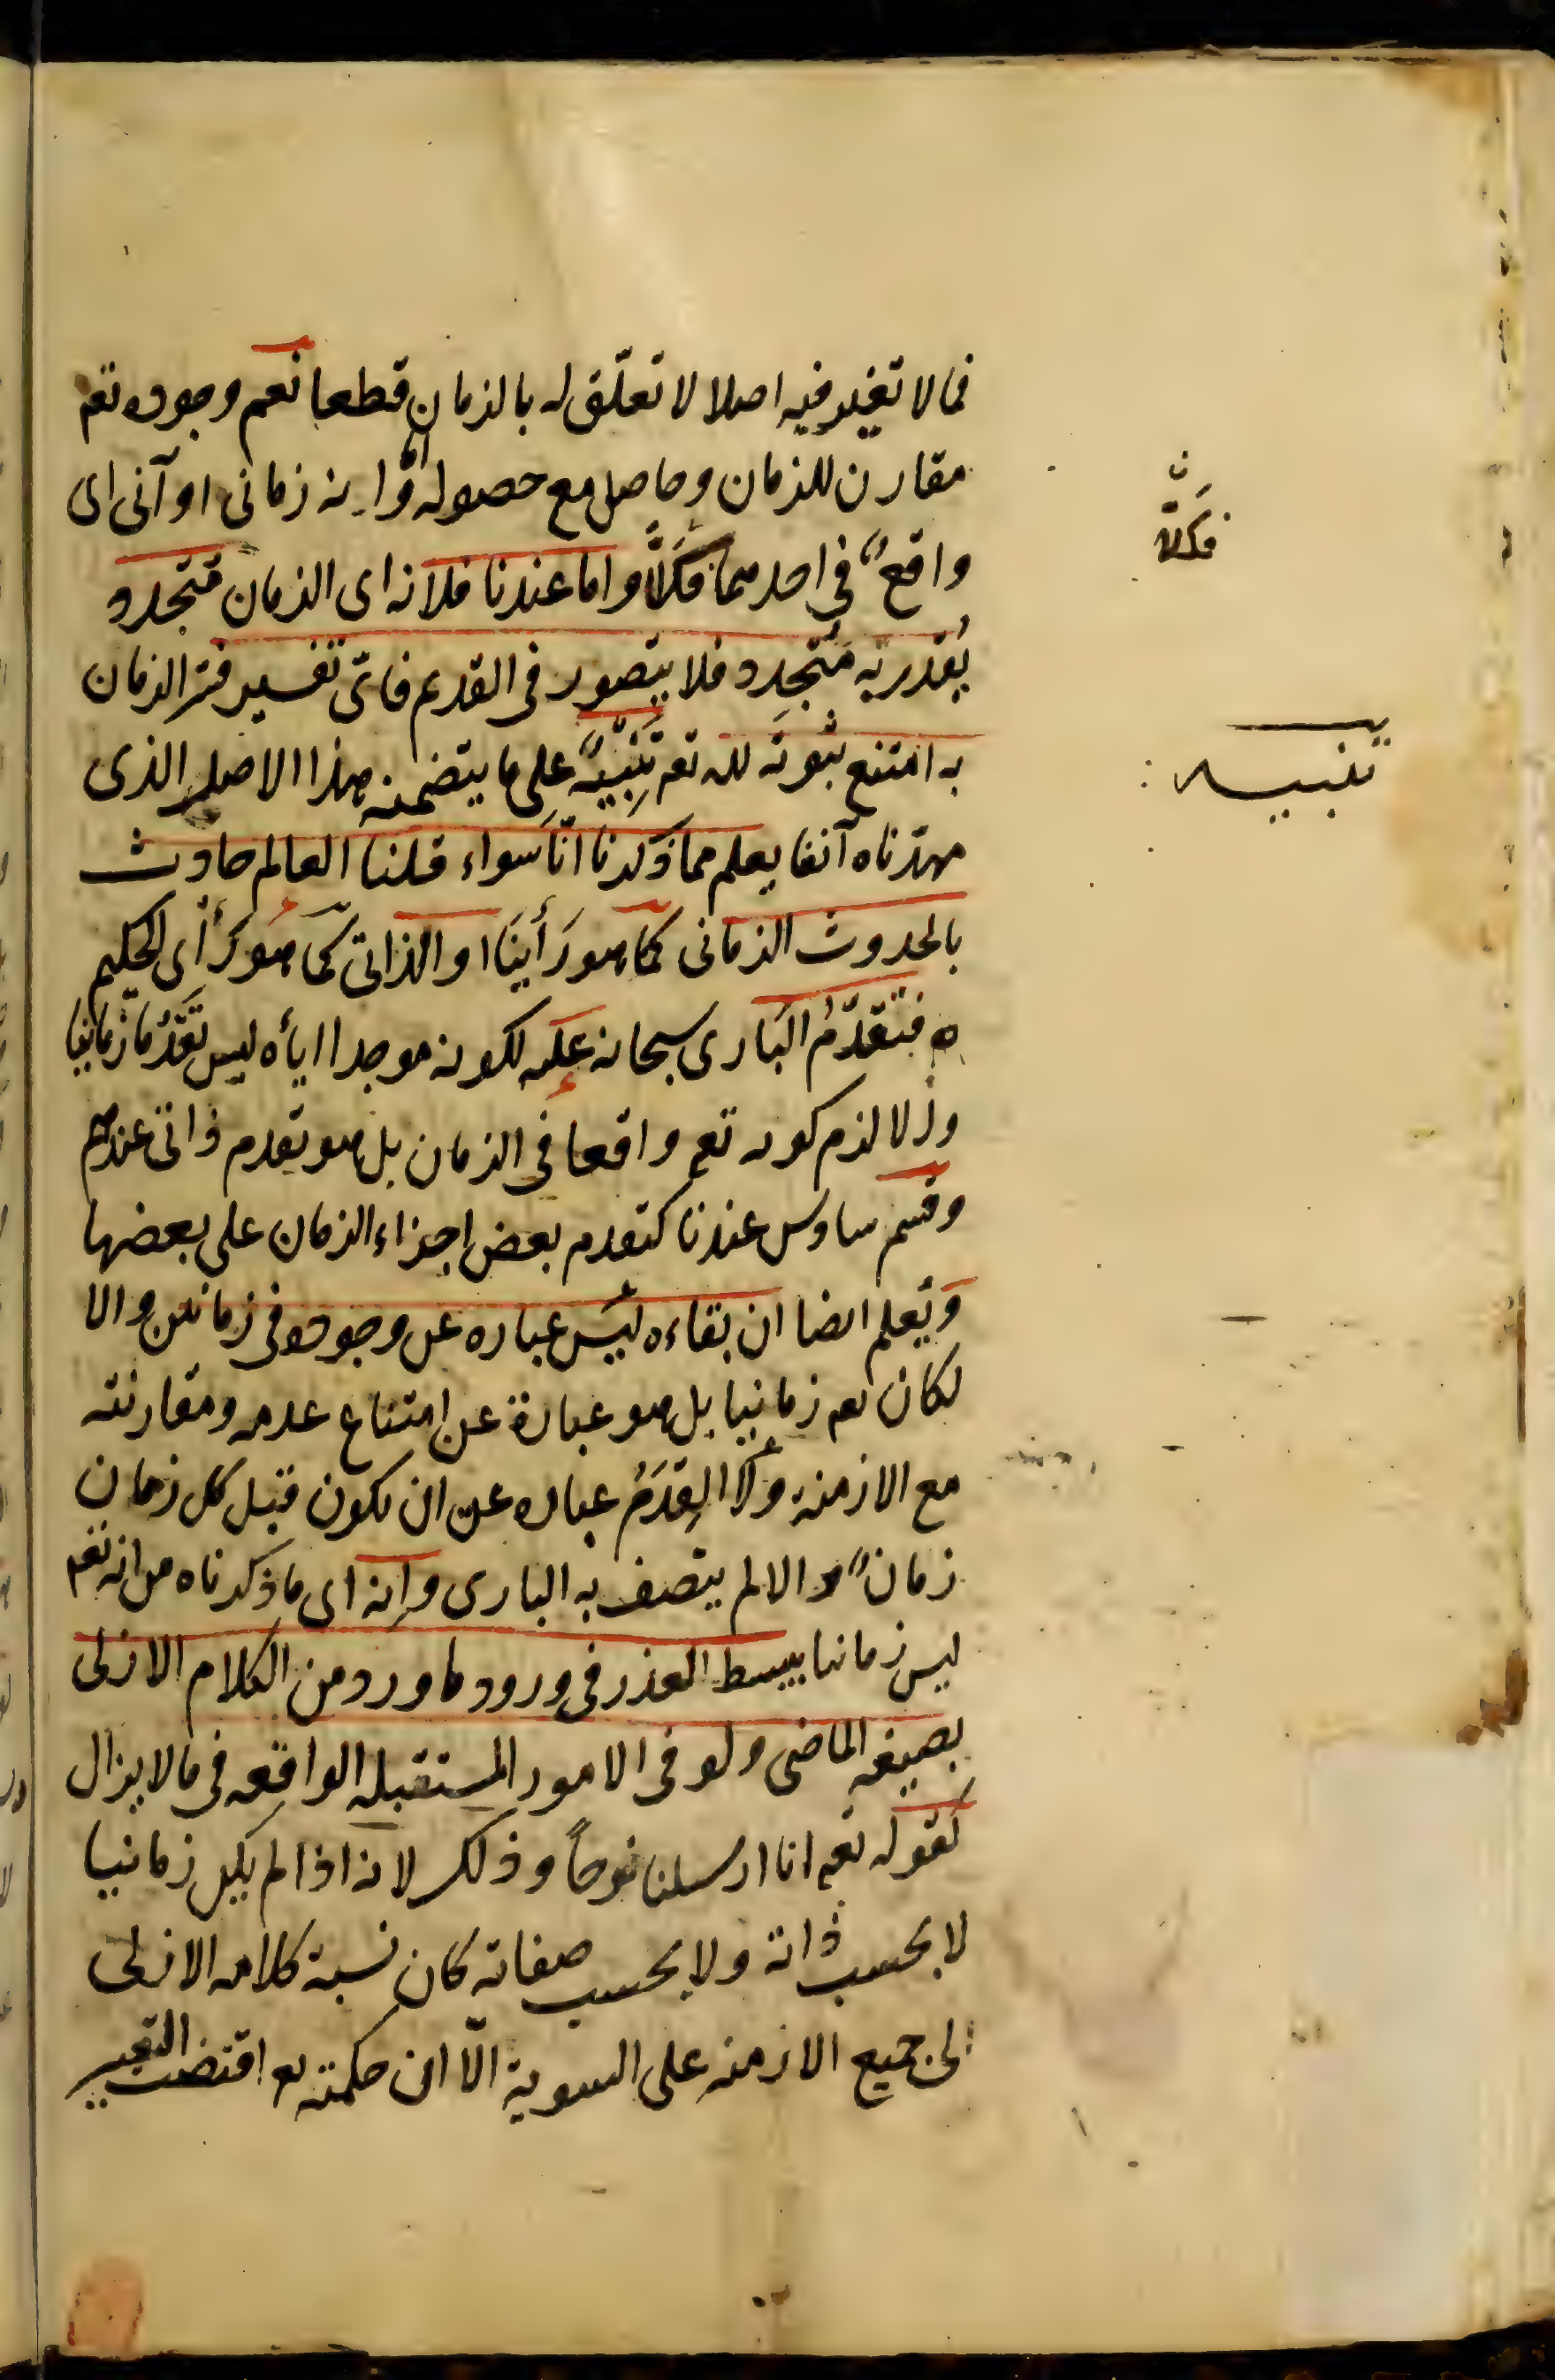 فما لا تغير فيه اصلا لا تعلّق له بالزمان قطعا نعم وجوده تعم
مقارن للزمان وحاصل مع حصوله وامّا انه زمانى او آنى اى
واقعٌ فى احدهما فكلّا واما عندنا فلانه اى الزمان متجدد
يُقدر به مُتجدد فلا يتصور فى القديم فاىّ تفسير فسّر الزمان
به امتنع ثبوته لله تعم تنبيهٌ على ما يتضمنه هذا الاصل الذى
مهّدناه آنفا يعلم مما ذكرنا انّا سواء قلنا العالم حادث
بالحدوث الزمانى كما هو رَأينَا او الذاتى كما هو رَأى الحكيم
فتقدّمُ البَارى سبحانه عليه لكونه موجدا اياه ليس تقدّمًا زمانيا
والا لزم كونه تعم واقعا فى الزمان بل هو تقدم ذاتى عندهم
وقسم سادس عندنا كتقدم بعض اجزاء الزمان على بعضها
ويعلم ايضا ان بقاءه ليس عباره عن وجوده فى زمانين والا
لكان تعم زمانيا بل هو عبارة عن امتناع عدمه ومقارنته
مع الازمنة ولا القِدَمُ عباره عن ان يكون قبل كل زمان
زمانٌ والا لم يتصف به البارى وانه اى ما ذكرناه من انه تعم
ليس زمانيا يبسط العذر فى ورود ما ورد من الكلام الازلى
بصيغة الماضى ولو فى الامور المستقبله الواقعه فى ما لا يزال
كقوله تعم انا ارسلنا نوحاً وذلك لانه اذا لم يكن زمانيا
لا بحسب ذاته ولا بحسب صفاته كان نسبة كلامه الازلى
الى جميع الازمنه على السوية الّا ان حكمته تعم اقتضت التعبير
ن
فكلّا
تنبيه